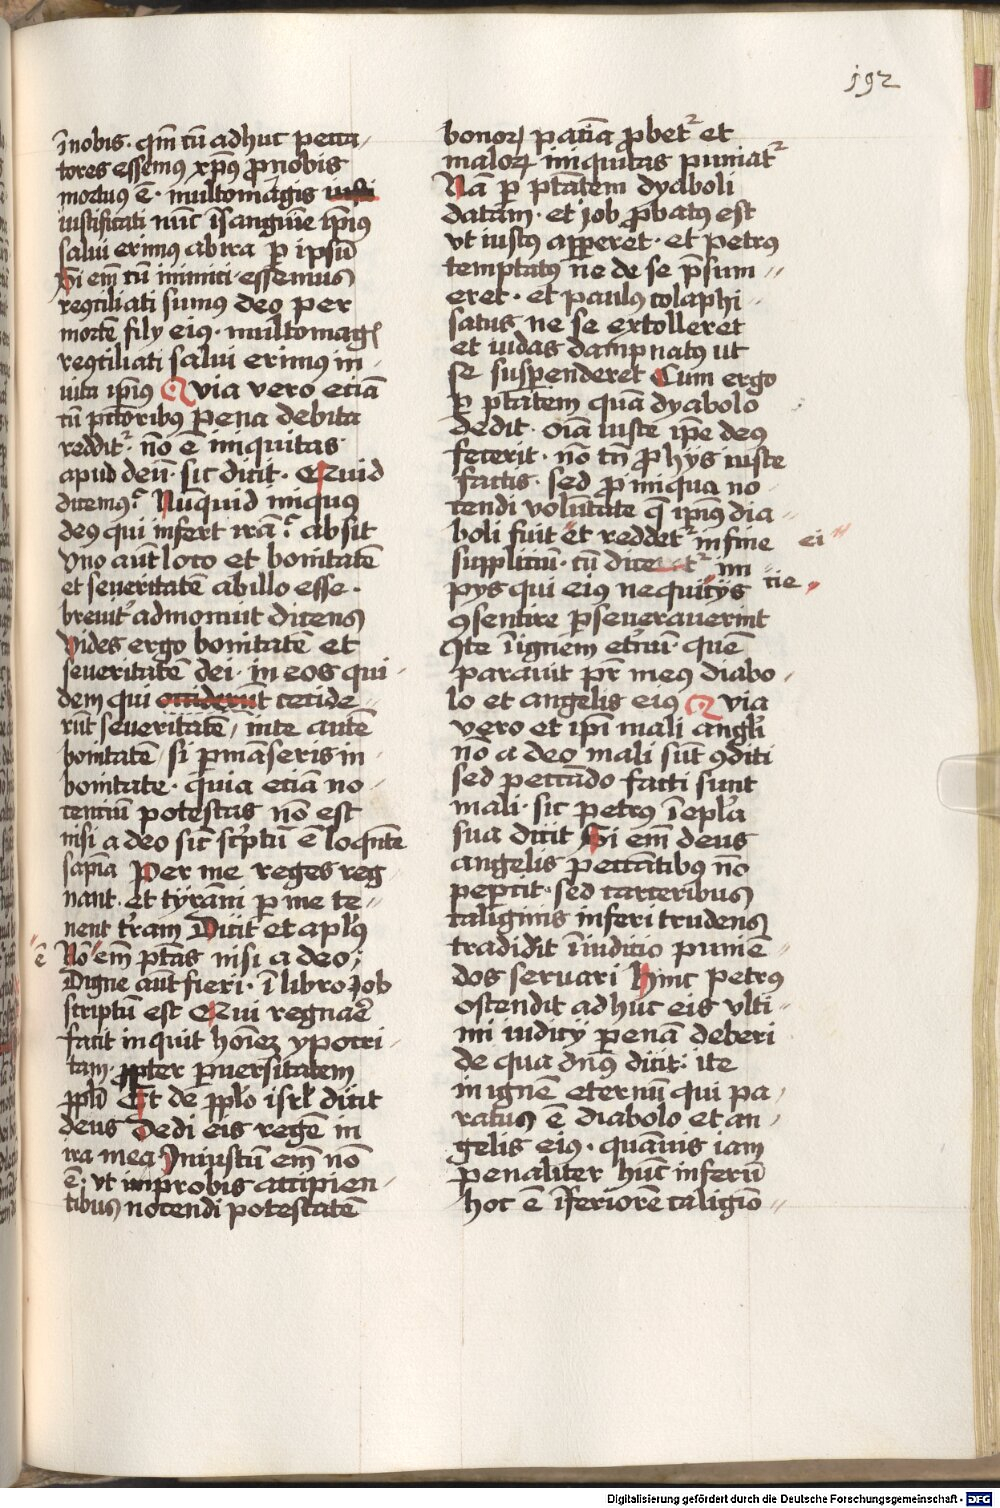 192
īnobis · qm̄ cū adhuc pecca
tores essemꝰ xp̄ꝰ ꝓnobis
mortuꝰ ē · multomagis iusti
iustificati nūc īsanguīe ip̄iꝰ
salui erimꝰ abira ꝑ ipsū
Si em̄ cū inimici · essemus
recōciliati sumꝰ deo per
mortē filÿ eiꝰ · multomag
recōciliati salui erimꝰ in
uita ip̄iꝰ Quia vero eciā
cū pctōribꝰ pena debita
redditᷣ · nō ē iniquitas
apud deū · sic dicit · Quid
dicemꝰ · Nūquid iniquus
deꝰ qui infert irā · absit
Uno aūt loco et bonitatē
et seueritatē abillo esse ·
breuitᷣ admonuit dicens
Vides ergo bonitatē et
seueritatē dei · in eos qui
dem qui ceciderūt cecide
rūt seueritatē / inte autē
bonitatē / si ꝑmāseris in
bonitate · quia eciā no
cenciū potestas nō est
nisi a deo sic̄ scͥptū ē loqn̄te
sapīa Per me reges reg
nant · et tÿrāni ꝑ me te
nent tr̄am Dicit et apl̓ꝰ
ē Nō em̄ pt̄as nisi a deo ;
Digne aūt fieri · ī libro Job
scriptū est Qui regnar̄e
facit inquit hoīez ypocri
tam · ꝓpter ꝑuersitatem
ppl̄i Et de ppl̓o isrl̓ dicit
deus Dedi eis regē in
ira mea Iniustū em̄ nō
ē · vt improbis accipien
tibus nocendi potestatē
bonoꝝ paciīa ꝓbetᷣ et
maloꝝ iniquitas puniatᷣ
Nā ꝑ pt̄atem dyaboli
datam · et Job ꝓbatꝰ est
vt iustꝰ apꝑeret · et petrꝰ
temptatꝰ ne de se p̄sum
eret · et paulꝰ colaphi
satus ne se extolleret
et iudas dampnatꝰ ut
se suspenderet Cum ergo
ꝑ pt̄atem quā dyabolo
dedit · oīa iuste ip̄e deꝰ
fecerit · nō tn̄ ꝓ hÿs iuste
factis · sed ꝓ iniqua no
cendi volūtate q̄ ip̄iꝰ dia
boli fuit et reddetᷣ infine ei
suppliciū · cū dicetᷣ im
pÿs qui eiꝰ nequicÿs cie
ꝯsentire ꝑseuerauerint
Ite ī ignem et̓nū · quē
parauit pr̄ meꝰ diabo
lo et angelis eiꝰ Quia
vero et ip̄i mali angl̓i
nō a deo mali sūt ꝯditi
sed peccādo facti sunt
mali · sic petrꝰ ī epl̓a
sua dicit Si em̄ deus
angelis peccātibꝰ nō
peꝑcit · sed carceribus
caliginis inferi trudens
tradidit ī iudicio puniē
dos seruari Hinc petrꝰ
ostendit adhuc eis vlti
mi iudicÿ penā deberi
de qua dn̄s dicit : ite
in ignē eternū qui pa
ratus ē diabolo et an
gelis eiꝰ · quāuis iam
penaliter hūc inferū
hoc ē īferiorē caligīo
Digitalisierung gefördert durch die Deutsche Forschungsgemeinschaft - DFG